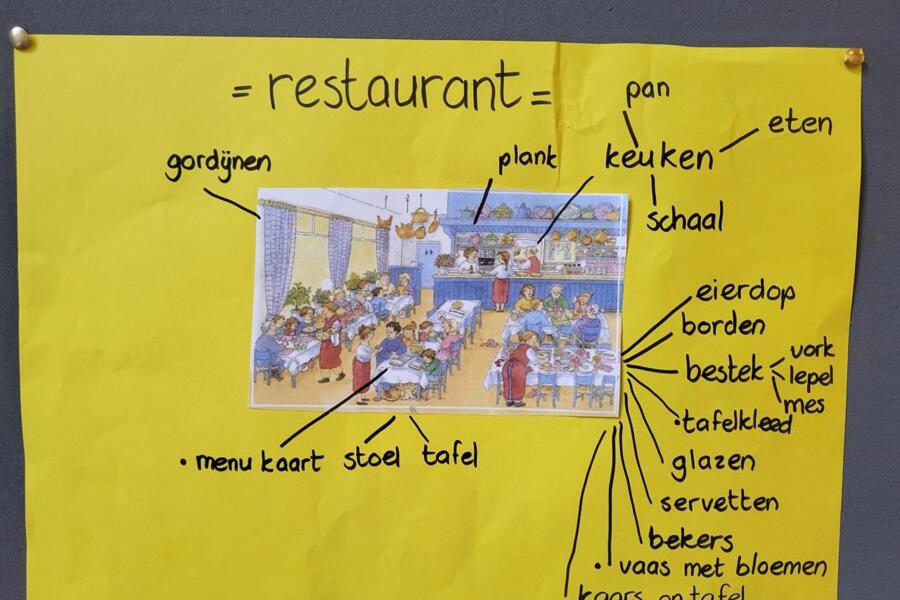 = restaurant =
pan
eten
gordijnen
plank
keuken
schaal
eierdop
borden
bestek
vork
lepel
mes
•tafelkleed
• menu kaart stoel tafel
glazen
servetten
bekers
• vaas met bloemen
kaars op tafel